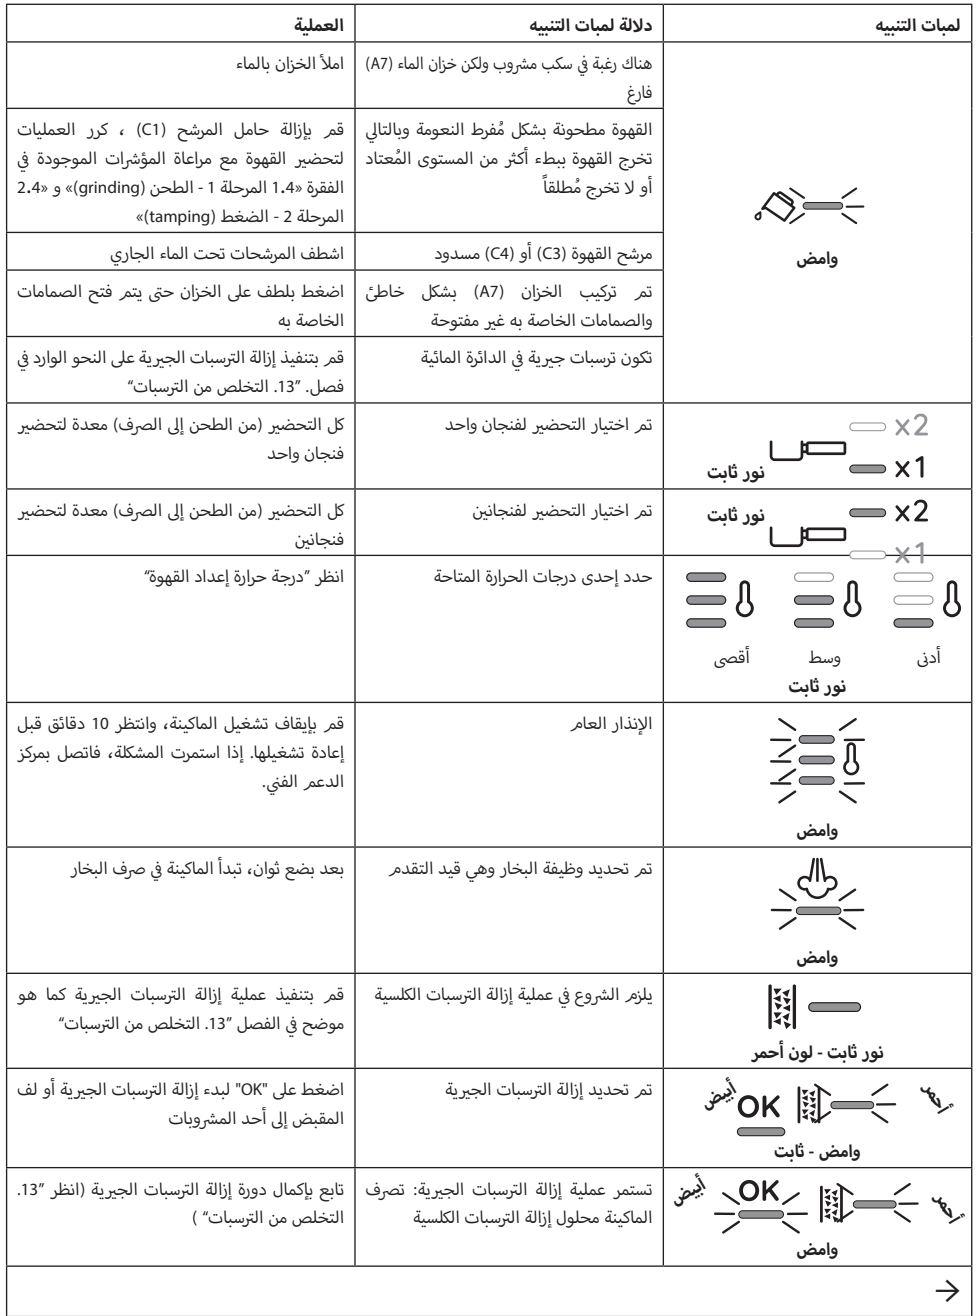 لمبات التنبيه
دلالة لمبات التنبيه
العملية
وامض
هناك رغبة في سكب مشروب ولكن خزان الماء (A7)
فارغ
املأ الخزان بالماء
القهوة مطحونة بشكل مُفرط النعومة وبالتالي
تخرج القهوة ببطء أكثر من المستوى المُعتاد
أو لا تخرج مُطلقاً
قم بإزالة حامل المرشح (C1) ، كرر العمليات
لتحضير القهوة مع مراعاة المؤشرات الموجودة في
الفقرة «1.4 المرحلة 1 - الطحن (grinding)» و «2.4
المرحلة 2 - الضغط (tamping)»
مرشح القهوة (C3) أو (C4) مسدود
اشطف المرشحات تحت الماء الجاري
تم تركيب الخزان (A7) بشكل خاطئ
والصمامات الخاصة به غير مفتوحة
اضغط بلطف على الخزان حتى يتم فتح الصمامات
الخاصة به
تكون ترسبات جيرية في الدائرة المائية
قم بتنفيذ إزالة الترسبات الجيرية على النحو الوارد في
فصل. ”13. التخلص من الترسبات“
x2
x1
نور ثابت
تم اختيار التحضير لفنجان واحد
كل التحضير (من الطحن إلى الصرف) معدة لتحضير
فنجان واحد
x2
نور ثابت
x1
تم اختيار التحضير لفنجانين
كل التحضير (من الطحن إلى الصرف) معدة لتحضير
فنجانين
أدنى
وسط
أقصى
نور ثابت
حدد إحدى درجات الحرارة المتاحة
انظر ”درجة حرارة إعداد القهوة“
وامض
الإنذار العام
قم بإيقاف تشغيل الماكينة، وانتظر 10 دقائق قبل
إعادة تشغيلها. إذا استمرت المشكلة، فاتصل بمركز
الدعم الفني.
وامض
تم تحديد وظيفة البخار وهي قيد التقدم
بعد بضع ثوان، تبدأ الماكينة في صرف البخار
نور ثابت - لون أحمر
يلزم الشروع في عملية إزالة الترسبات الكلسية
قم بتنفيذ عملية إزالة الترسبات الجيرية كما هو
موضح في الفصل ”13. التخلص من الترسبات“
أحمر
OK
أبيض
وامض - ثابت
تم تحديد إزالة الترسبات الجيرية
اضغط على "OK" لبدء إزالة الترسبات الجيرية أو لف
المقبض إلى أحد المشروبات
أحمر
OK
أبيض
وامض
تستمر عملية إزالة الترسبات الجيرية: تصرف
الماكينة محلول إزالة الترسبات الكلسية
تابع بإكمال دورة إزالة الترسبات الجيرية (انظر ”13.
التخلص من الترسبات“ )